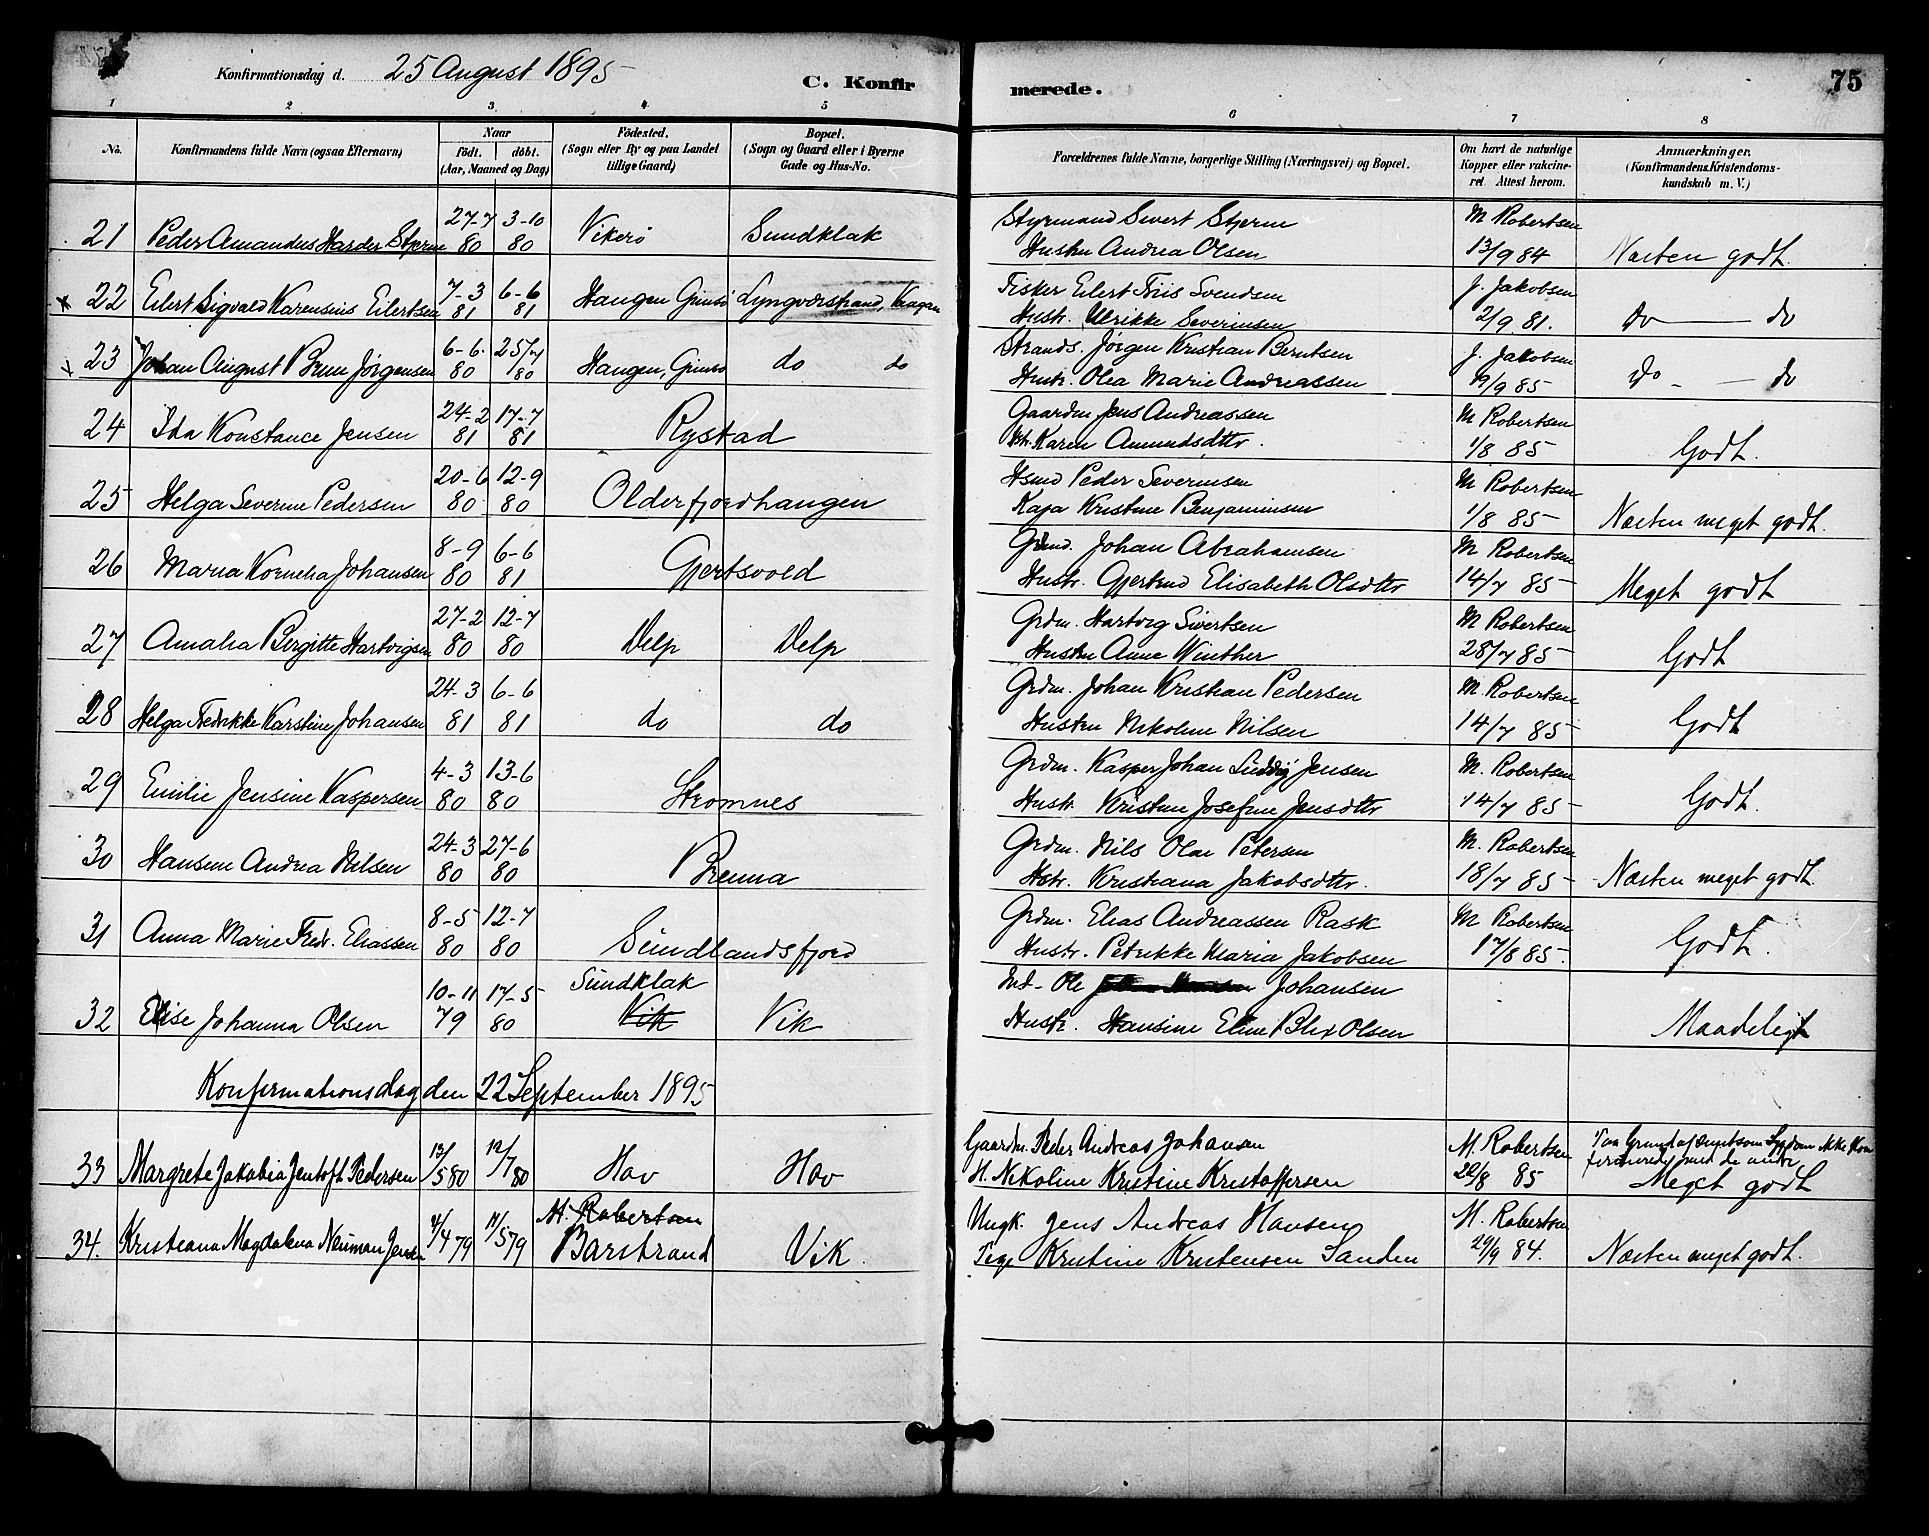 Konfirmationsdag d. 25 August 1895
C. Konfir
merede.
75
1 2 3 4 5 6 7 8
No. Konfirmandens fulde Navn (ogsaa Efternavn)
Naar
födt. döbt.
(Aar, Maaned og Dag)
Födested.
(Sogn eller By og paa Landet
tillige Gaard)
Bopæl.
(Sogn og Gaard eller i Byerne
Gade og Hus-No.
Forældrenes fulde Navne, borgerlige Stilling (Næringsvei) og Bopæl.
Om havt de naturlige
Kopper eller vakcine-
ret. Attest herom.
Anmærkninger.
(Konfirmandens Kristendoms-
kundskab m. V.)
27-7 3-10 Styrmand Sivert Stjern M Robertsen
21 Peder Amandus Harder Stjern 80 80 Vikerö Sundklak Hustru Andrea Olsen 13/9 84 Næsten godt.
7-3 6-6 Fisker Eilert Friis Svendsen J. Jakobsen
x 22 Eilert Sigvald Karensius Eilertsen 81 81 Haugen Gimsö Lyngværstrand, Vaagan Hustr. Ulrikke Severinsen 2/9 81. Do — do
6-6. 25/7 Strands. Jørgen Kristian Berntsen J. Jakobsen
x 23 Johan August Brun Jørgensen 80 80 Haugen, Gimsö do do Hustr. Olea Marie Andreassen 19/9 85 Do - — do
24-2 17-7 Gaardm. Jens Andreassen M Robertsen
24 Ida Konstance Jensen 81 81 Rystad Hstr. Karen Amundsdttr. 1/8 85 Godt.
20-6 12-9 Hsmd Peder Severinsen M Robertsen
25 Helga Severine Pedersen 80 80 Olderfjordhaugen Kaja Kristine Benjaminsen 1/8 85 Næsten meget godt.
8-9 6-6 Grdmd. Johan Abrahamsen M Robertsen
26 Maria Kornelia Johansen 80 81 Gjertsvold Hustr. Gjertrud Elisabeth Olsdttr 14/7 85 Meget godt
27-2 12-7 Grdm. Hartvig Sivertsen M Robertsen
27 Amalia Bergitte Hartvigsen 80 80 Delp Delp Hustru Anne Winther 28/7 85 Godt
24-3 6-6 Grdm. Johan Kristian Pedersen M. Robertsen
28 Helga Fredrikke Karstine Johansen 81 81 do do Hustru Nikoline Nilsen 14/7 85 Godt
4-3 13-6 Grdm. Kasper Johan Luddig Jensen M. Robertsen
29 Emilie Jensine Kaspersen 80 80 Stromnes Hustr. Kristine Josefine Jensdttr 14/7 85 Godt.
24-3 27-6 Grdm. Nils Olai Petersen M. Robertsen
30 Hansine Andrea Nilsen 80 80 Brenna Hstr. Kristiana Jakobsdttr. 18/7 85 Næsten meget godt
8-5 12-7 Grdm. Elias Andreassen Rask M Robertsen
31 Anna Marie Fredr. Eliassen 80 80 Sundlandsfjord Hustr. Petrikke Maria Jakobsen 17/8 85. Godt.
10-11 17-5 Sundklak Ind- Ole Johansen
32 Elise Johanna Olsen 79 80 Vik Vik Hustr. Hansine Eline Blix Olsen Maadeligt
Konfirmationsdag den 22 September 1895
33 Margrete Jakobia Jentoft Pedersen 13/5 80 12/7 80 Hov Hov Gaardm. Peder Andreas Johansen M. Robertsen Paa Grund af smitsom Sygdom ikke kon
H. Nikoline Kristine Kristoffersen 22/8 85 firmeret med de andre
Meget godt
M. Robertsen Ungk. Jens Andreas Hansen M. Robertsen
34. Kristiana Magdalena Neuman Jensen 4/4 79 11/5 79 Barstrand Vik. Pige Kristine Kristensen Sanden 29/9 84. Næsten meget godt.